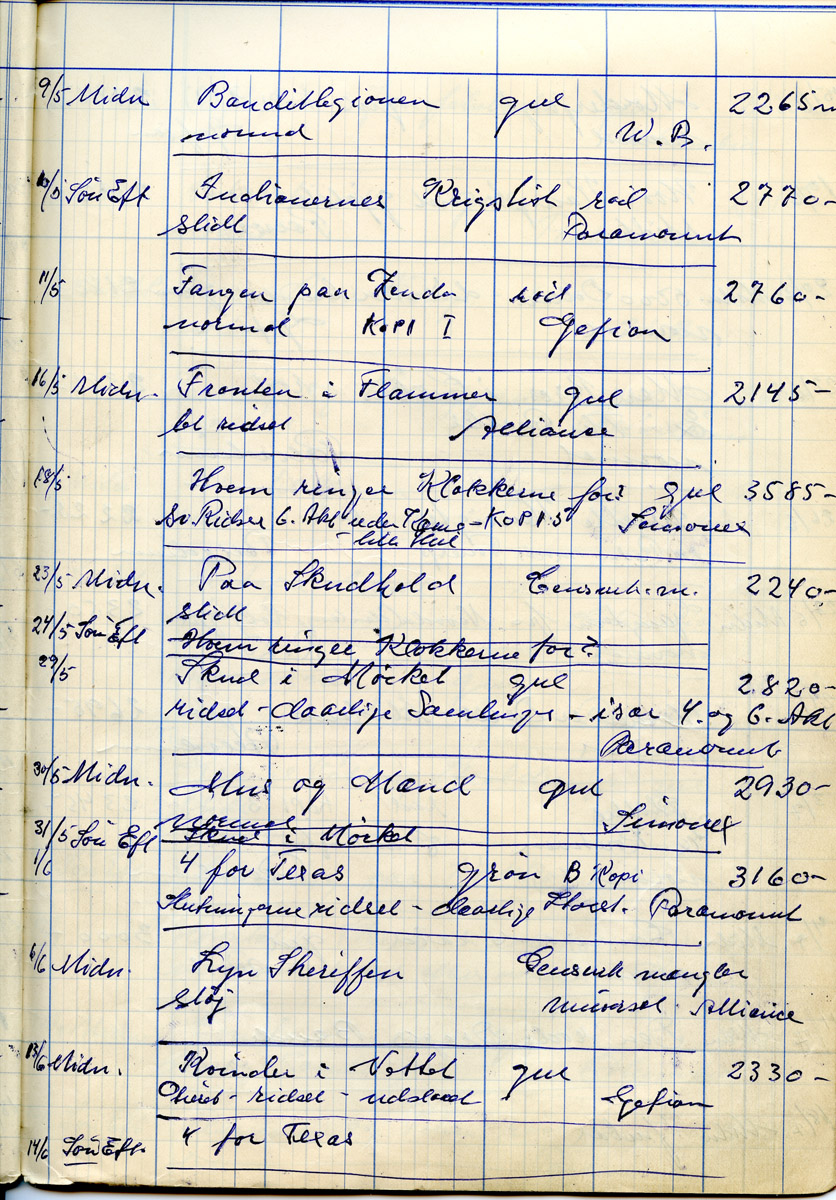 9/5 Midn Banditlegionen gul 2265 m
normal W.B.
10/5 Søn Eft Indianernes Krigslist rød 2770-
slidt Paramount
11/5 Fangen paa Zenda rød 2760-
normal KOPI I Gefion
16/5 Midn. Fronten i Flammer gul 2145-
let ridset Alliance
18/5 Hvem ringer Klokkerne for? gul 3585-
Sv Ridser 6. Akt KOPI 5 Simonex
lille Hul
23/5 Midn. Paa Skudhold Censurk. m. 2240-
slidt
24/5 Søn Eft Hvem ringer Klokkerne for?
29/5 Skud i Mörket gul 2.820-
ridset - daarlige Samlinger - især 4. og 6. Akt
Paramount
30/5 Midn. Mus og Mænd gul 2930-
normal Simonex
31/5 Søn Eft Skud i Mörket
1/6 4 for Texas grön B Kopi 3160-
ridset - daarlige Paramount
6/6 Midn. Lyn Sheriffen Censurk mangler
Støj Universal Alliance
13/6 Midn. Kvinder i Nettet gul 2330-
ridset - udslaaet Gefion
14/6 Søn Eft. 4 for Texas